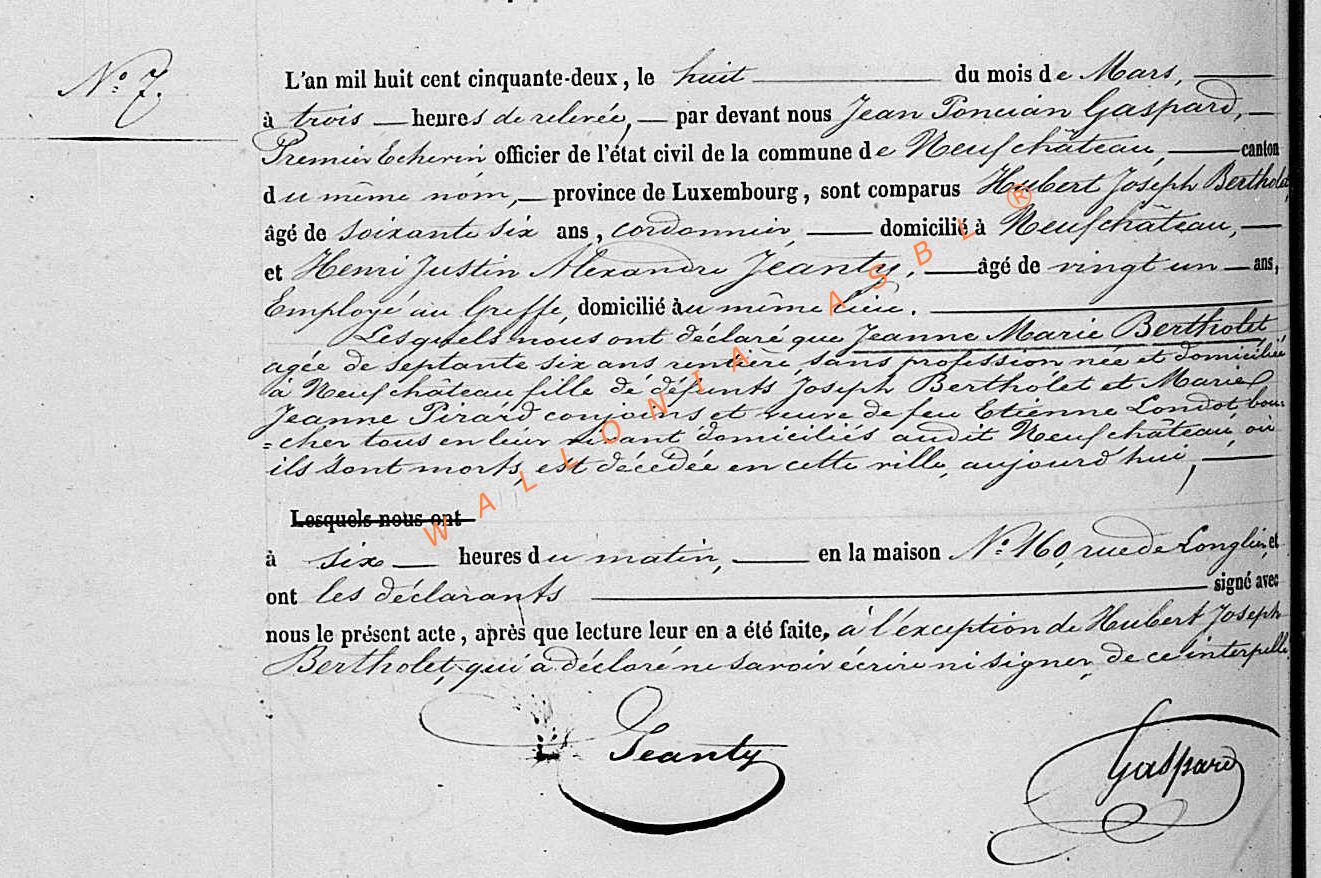 N° 7.
L'an mil huit cent cinquante-deux, le huit du mois de Mars,
à trois heures de relevée, par devant nous Jean Poncian Gaspard,
Premier Echevin officier de l'état civil de la commune de Neufchâteau, canton
du même nom, province de Luxembourg, sont comparus Hubert Joseph Bertholet
âgé de soixante six ans, cordonnier, domicilié à Neufchâteau,
et Henri Justin Alexandre Jeanty, âgé de vingt un ans,
Employé au Greffe, domicilié au même lieu.
Lesquels nous ont déclaré que Jeanne Marie Bertholet
agée de septante six ans rentière, sans profession née et domiciliée
à Neufchâteau fille de défunts Joseph Bertholet et Marie
Jeanne Pirard conjoins et veuve de feu Etienne Londot, bou-
=cher tous en leur vivant domiciliés audit Neufchâteau, où
ils sont morts, est décédée en cette ville, aujourd'hui,
Lesquels nous ont
à six heures du matin, en la maison N° 160, rue de Longlier, et
ont les déclarants signé avec
nous le présent acte, après que lecture leur en a été faite, à l'exception de Hubert Joseph
Bertholet, qui a déclaré ne savoir écrire ni signer, de ce interpellé.
Jeanty
Gaspard
WALLONIA ASBL ®